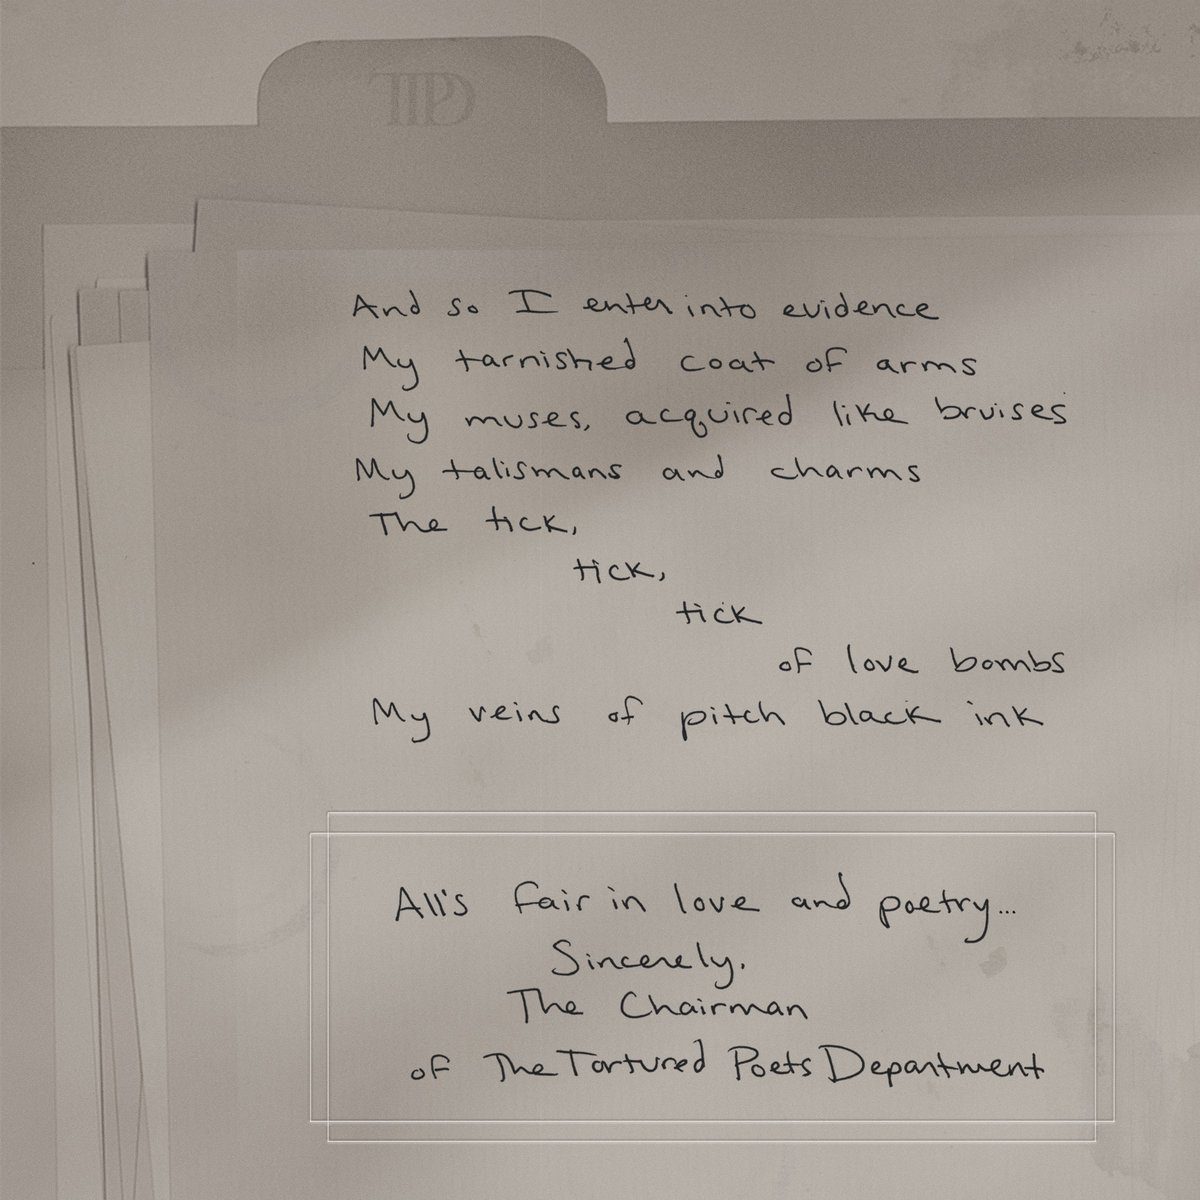 TTPD
And so I enter into evidence
My tarnished coat of arms
My muses, acquired like bruises
My talismans and charms
The tick,
tick,
tick
of love bombs
My veins of pitch black ink
All's fair in love and poetry...
Sincerely,
The Chairman
of The Tortured Poets Department